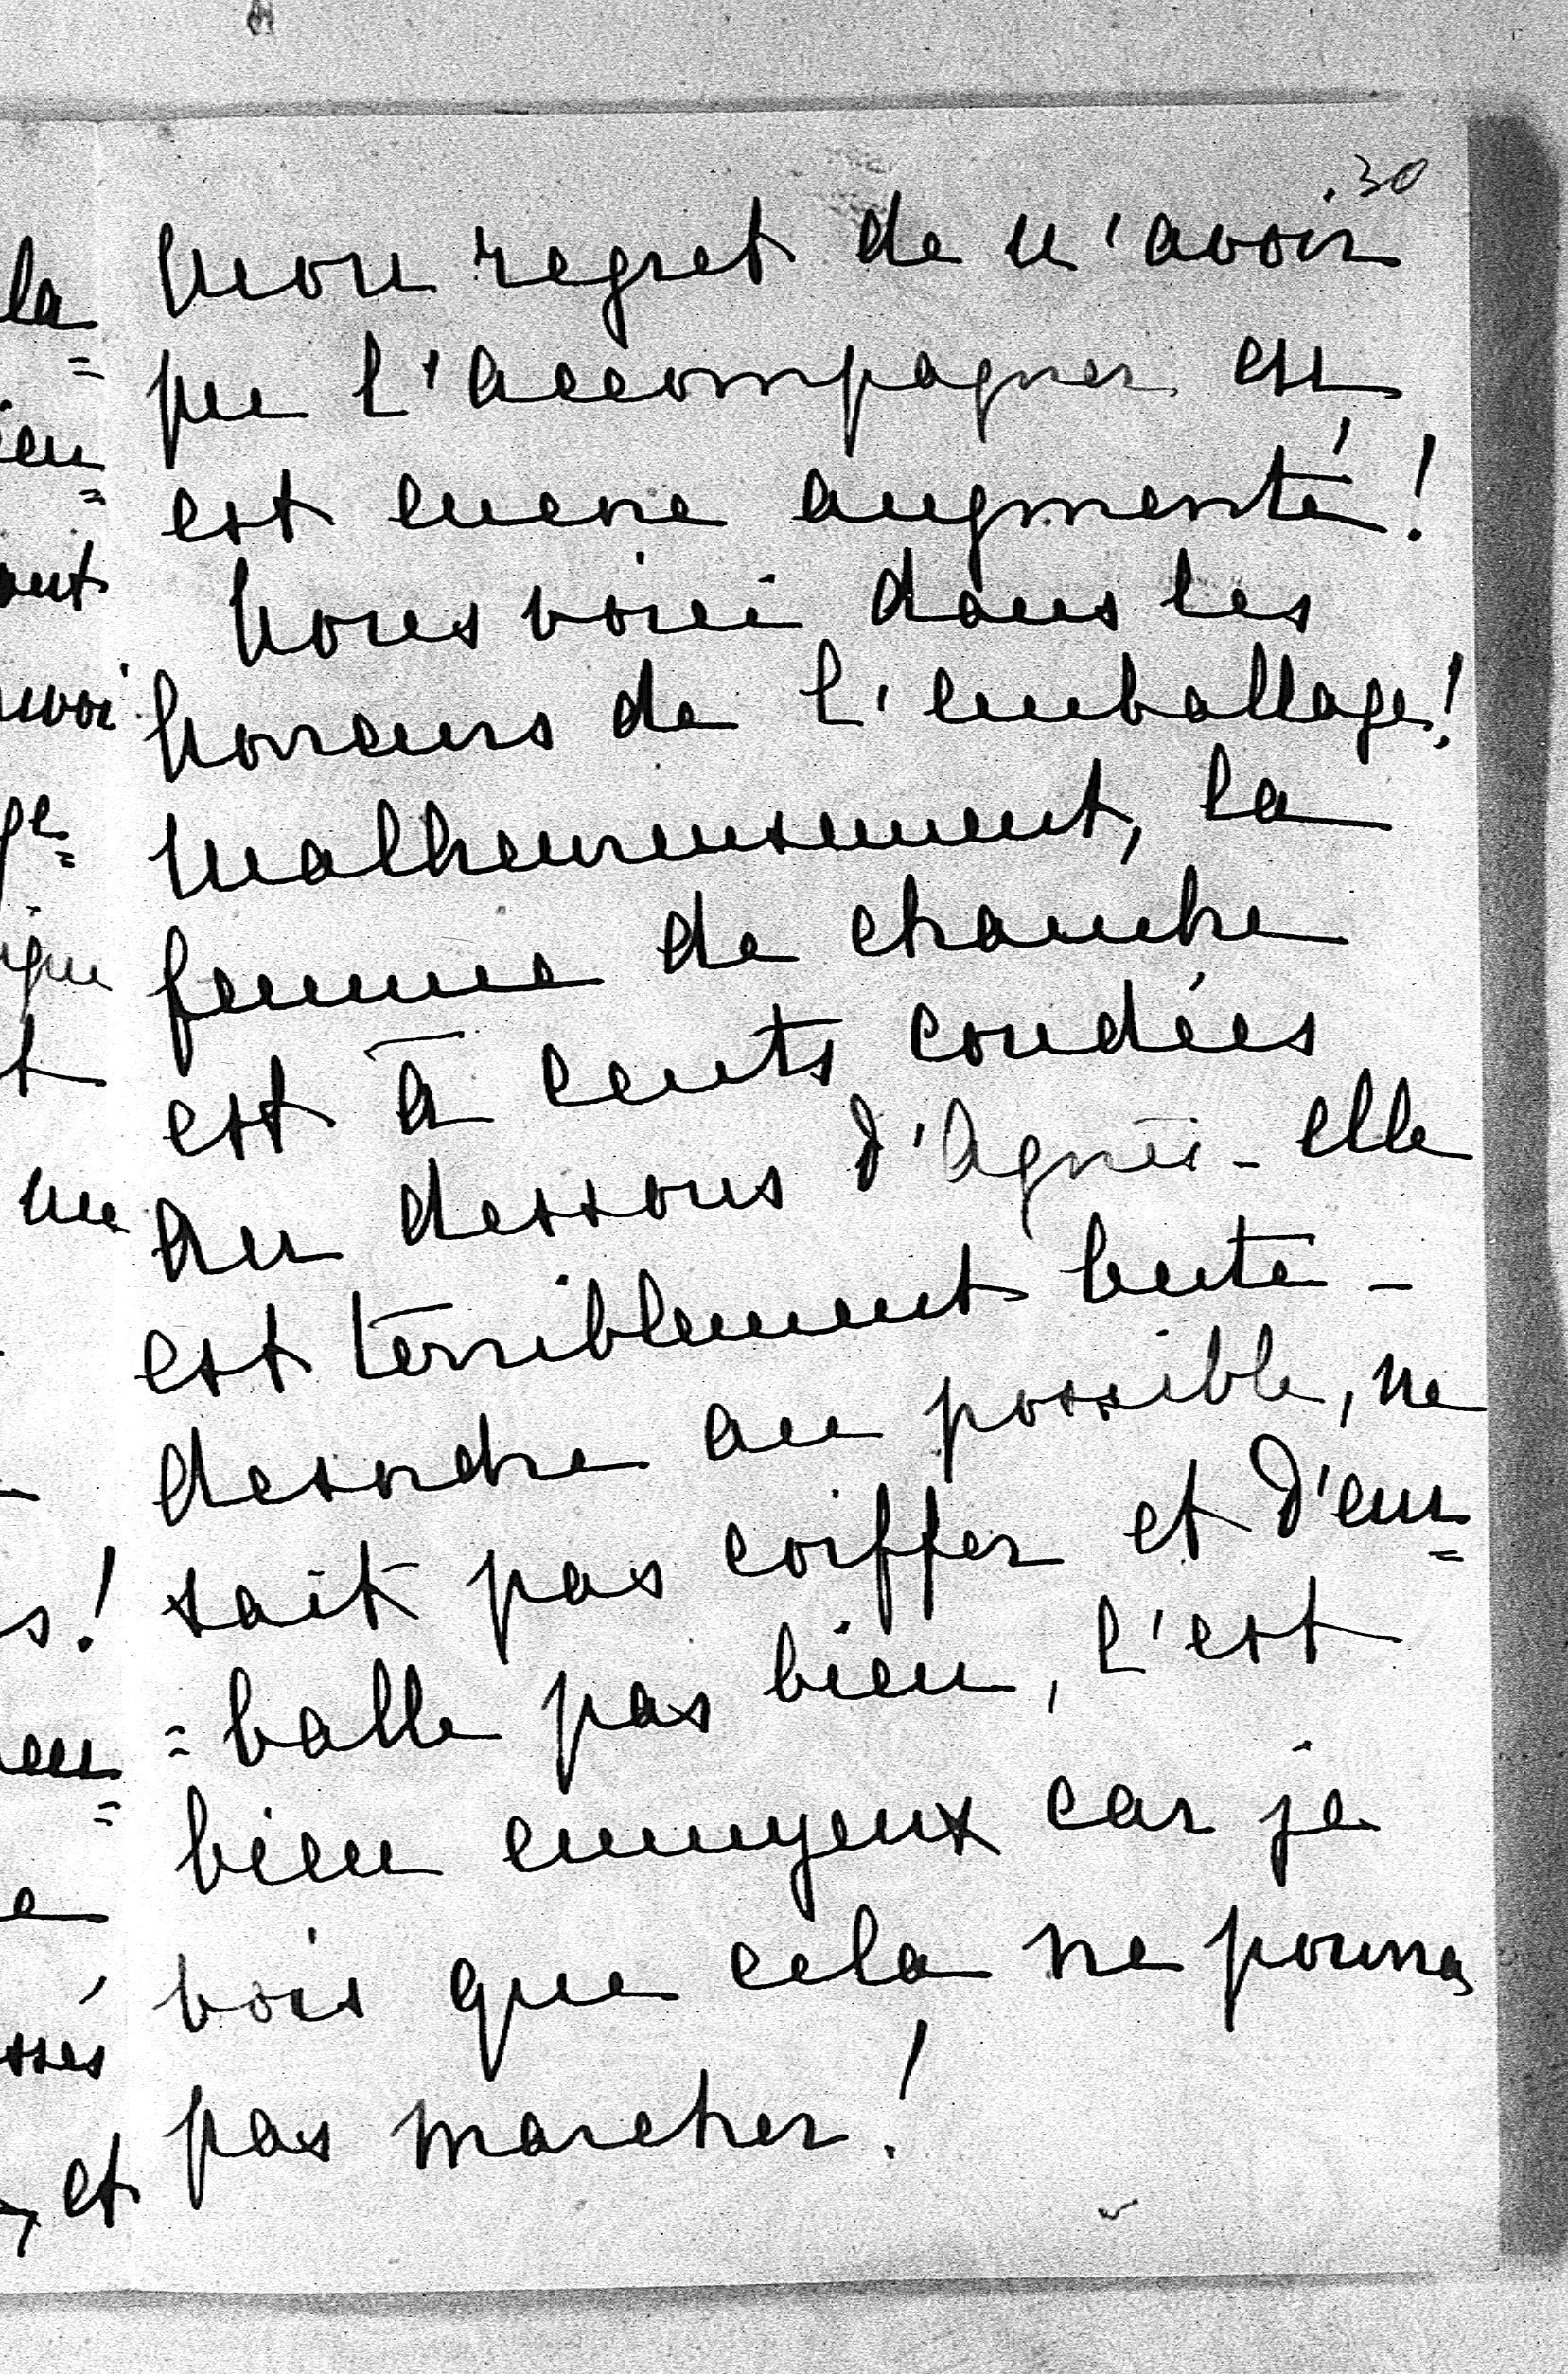 30
mon regret de n'avoir
pu l'accompagner en
est encore augmenté!
Nous voici dans les
horreurs de l'emballage!
Malheureusement, la
femme de chambre
est à cents coudées
au dessous d'Agnès - elle
est terriblement lente -
desordre au possible, ne
sait pas coiffer et d'em=
=balle pas bien, c'est
bien ennuyeux car je
vois que cela ne pourra
pas marcher!
la=
ien=
ont
t
me
s!
e
et